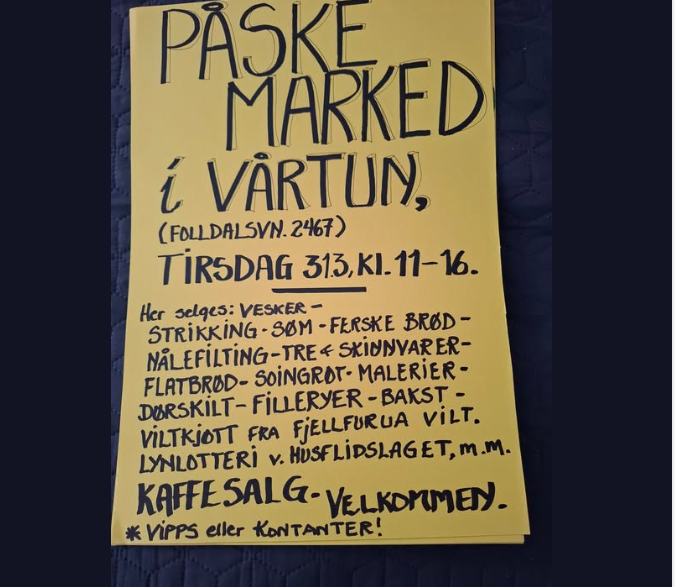 PÅSKE
MARKED
i VÅRTUN,
(FOLLDALSVN. 2467)
TIRSDAG 313, Kl. 11-16.
Her selges: VESKER -
STRIKKING - SØM - FERSKE BRØD -
NÅLEFILTING - TRE & SKINNVARER -
FLATBRØD - SOINGRØT - MALERIER -
DØRSKILT - FILLERYER - BAKST -
VILTKJØTT FRA FJELLFURUA VILT.
LYNLOTTERI v. HUSFLIDSLAGET, m.m.
KAFFESALG - VELKOMMEN.
* VIPPS eller KONTANTER!